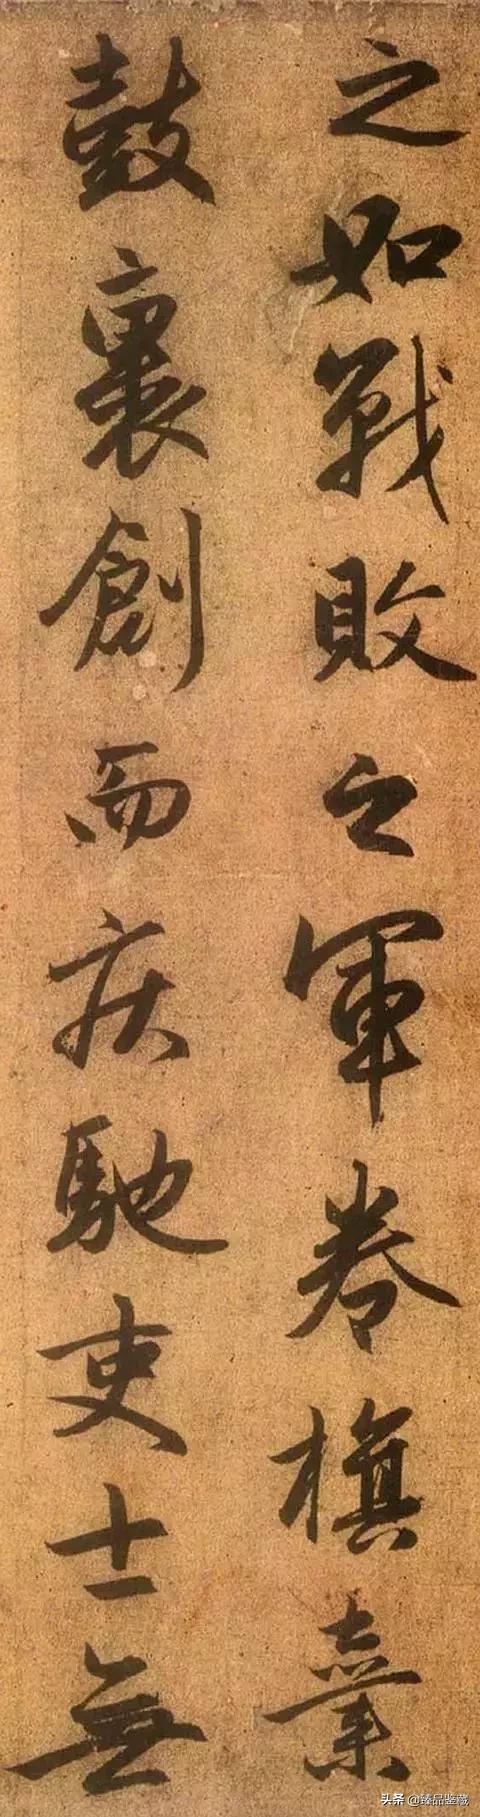 之如戰敗之軍卷旗棄
鼓裹創而疾馳吏士無
头条 @臻品鉴藏